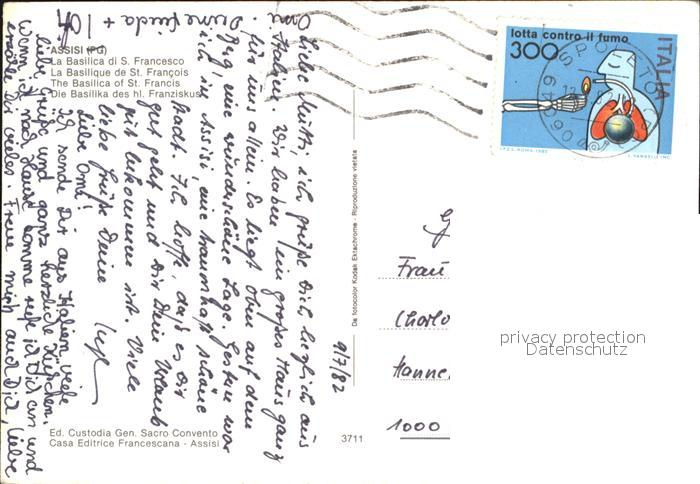 ASSISI (PG)
La Basilica di S. Francesco
La Basilique de St. François
The Basilica of St. Francis
Die Basilika des hl. Franziskus
lotta contro il fumo
300
ITALIA
SPOLETO
06049
I.P.Z.S. ROMA-1982
9/7/82
Liebe Mutti, ich grüße Dich herzlich aus
Italien. Wir haben ein großes Haus ganz
für uns allein. Es liegt oben auf dem
Berg, eine wunderschöne Lage. Gestern war
ich in Assisi, eine traumhaft schöne
Stadt. Ich hoffe, daß es Dir
gut geht und Dir Dein Urlaub
gut bekommen ist. Viele
liebe Grüße Deine
Liebe Omi!
Ich sende Dir aus Italien viele
liebe Grüße und ganz herzliche Küßchen.
Wenn ich nach Hause komme rufe ich Dich an und
erzähle Dir vieles. Freue mich auf Dich, liebe
Omi. Deine + 
Da fotocolor Kodak Ektachrome - Riproduzione vietata
Frau
Charlo
Hanne
1000
privacy protection
Datenschutz
Ed. Custodia Gen. Sacro Convento
Casa Editrice Francescana - Assisi
3711